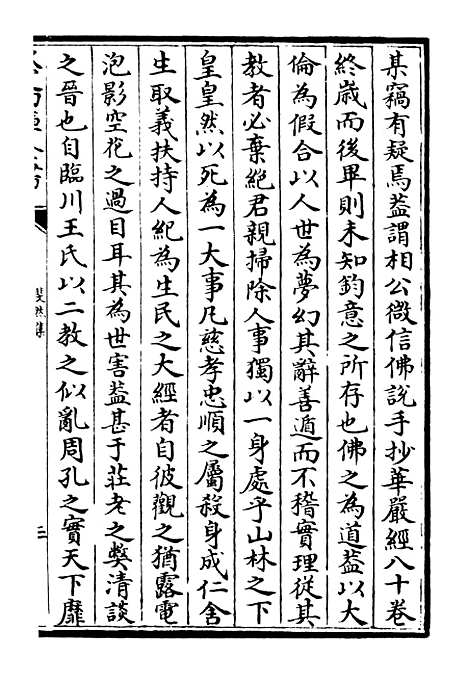 某竊有疑焉葢謂相公㣲信佛說手抄華嚴經八十卷
終歲而後畢則未知鈞意之所存也佛之為道葢以大
倫為假合以人世為夢幻其辭善遁而不稽實理從其
教者必棄絶君親掃除人事獨以一身處乎山林之下
皇皇然以死為一大事凡慈孝忠順之屬殺身成仁舍
生取義扶持人紀為生民之大經者自彼觀之猶露電
泡影空花之過目耳其為世害葢甚于莊老之弊清談
之晉也自臨川王氏以二教之似亂周孔之實天下靡
斐然集
三